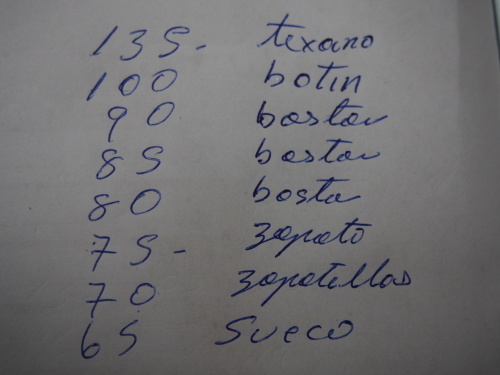 135- texano
100 botin
90 boston
85 boston
80 bosta
75- zapato
70 zapatillas
65 sueco